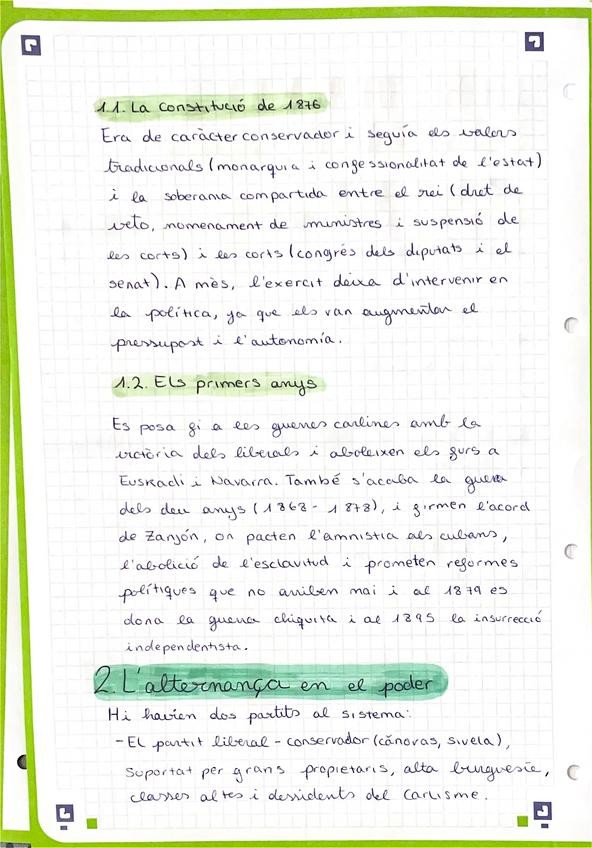 1.1. La Constitució de 1876
Era de caràcter conservador i seguía els valors
tradicionals (monarquia i confessionalitat de l'estat)
i la soberama compartida entre el rei (dret de
veto, nomenament de ministres i suspensió de
les corts) i les corts (congrés dels diputats i el
senat). A mès, l'exercit deixa d'intervenir en
la política, ja que els van augmentar el
pressupost i l'autonomía.
1.2. Els primers anys
Es posa fi a les guerres carlines amb la
victòria dels liberals i aboleixen els furs a
Euskadi i Navarra. També s'acaba la guerra
dels deu anys (1868 - 1878), i firmen l'acord
de Zanjón, on pacten l'amnistia als cubans,
l'abolició de l'esclavitud i prometen reformes
polítiques que no arriben mai i al 1879 es
dona la guerra chiquita i al 1895 la insurrecció
independentista.
2. L'alternança en el poder
Hi havien dos partits al sistema:
- El partit liberal - conservador (cánovas, sivela),
suportat per grans propietaris, alta burguesie,
classes altes i dessidents del Carlisme.